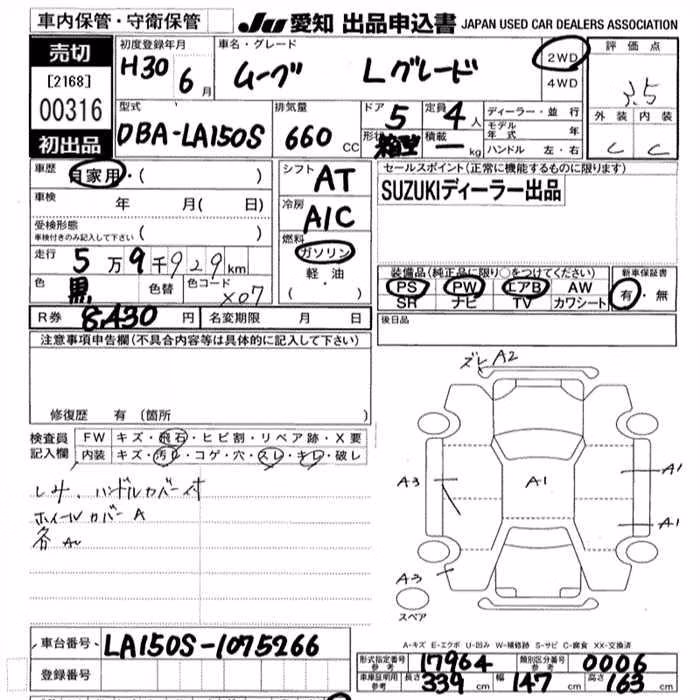 車内保管・守衛保管
JU 愛知 出品申込書 JAPAN USED CAR DEALERS ASSOCIATION
売切
[2168]
00316
初出品
初度登録年月
H30 6月
車名・グレード
ムーヴ Lグレード
2WD
4WD
評価点
3.5
外装 内装
C C
型式
DBA-LA150S
排気量
660 CC
ドア
5
定員
4人
形状
箱型
積載
ー kg
ディーラー・並行
モデル年式 年
ハンドル 左・右
車歴 自家用・( )
車検 年 月( 日)
受検形態
車検付きのみ記入して下さい ( )
走行 5万9千929km
色 黒 色替 色コード X07
シフト
AT
冷房
A/C
燃料
ガソリン
軽・油
( ・ )
セールスポイント(正常に機能するものに限ります)
SUZUKIディーラー出品
装備品(純正品に限り○をつけてください)
PS PW エアB AW
SR ナビ TV カワシート
新車保証書
有・無
R券 8,430円 名変期限 月 日
後日品
注意事項申告欄(不具合内容等は具体的に記入して下さい)
修復歴 有 (箇所 )
検査員記入欄
FW キズ・飛石・ヒビ割・リペア跡・X要
内装 キズ・汚れ・コゲ・穴・スレ・キレ・破レ
シミ、ハンドルカバー付
ホイールカバーA
ズレA2
A3
A1
A1
A1
A3
スペア
A-キズ E-エクボ U-凹み W-補修跡 S-サビ C-腐食 XX-交換済
車台番号 LA150S-1075266
登録番号
形式指定番号 参考 17964 類別区分番号 参考 0006
車庫証明用 参考 長さ 339 cm 幅 147 cm 高さ 163 cm